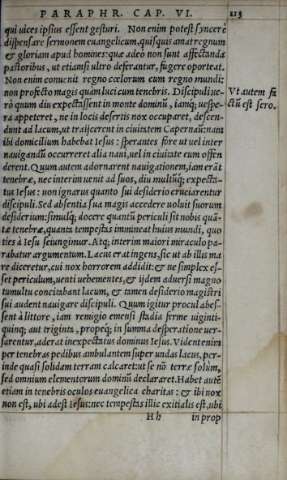 PARAPHR. CAP. VI. 213
qui uices ipsius essent gesturi. Non enim potest syncere
dispensare sermonem euangelicum, quisquis amat regnum
& gloriam apud homines: quæ adeò non sunt affectanda
pastoribus, ut etiamsi ultro deferantur, fugere oporteat.
Non enim conuenit regno cœlorum cum regno mundi:
non profecto magis quam luci cum tenebris. Discipuli ue-
rò quum diu expectassent in monte dominũ, iamq; uespe-
ra appeteret, ne in locis desertis nox occuparet, descen-
dunt ad lacum, ut traijcerent in ciuitatem Capernaũ: nam
ibi domicilium habebat Iesus: sperantes fore ut uel inter
nauigandũ occurreret alia naui, uel in ciuitate eum offen
derent. Quum autem adornarent nauigationem, iam erãt
tenebræ, nec interim uenit ad suos, diu multũq; expecta-
tus Iesus: non ignarus quanto sui desiderio cruciarentur
discipuli. Sed absentia sua magis accedere uoluit suorum
desiderium: simulq; docere quantũ periculi sit nobis quã-
tæ tenebræ, quanta tempestas immineat huius mundi, quo
ties à Iesu seiungimur. Atq; interim maiori miraculo pa-
rabatur argumentum. Lacus erat ingens, sic ut ab illis ma
re diceretur, cui nox horrorem addidit: & ne simplex es-
set periculum, uenti uehementes, & ijdem aduersi magno
tumultu concitabant lacum, & tamen desiderio magistri
sui audent nauigare discipuli. Quum igitur procul abes-
sent à littore, iam remigio emensi stadia ferme uiginti-
quinq; aut triginta, propeq; in summa desperatione uer-
sarentur, aderat inexpectatus dominus Iesus. Vident enim
per tenebras pedibus ambulantem super undas lacus, per-
inde quasi solidam terram calcaret: ut se nõ terræ solùm,
sed omnium elementorum dominũ declararet. Habet autẽ
etiam in tenebris oculos euangelica charitas: & ibi nox
non est, ubi adest Iesus: nec tempestas illic exitialis est, ubi
Hh in prop
Vt autem fa
ctũ est sero.